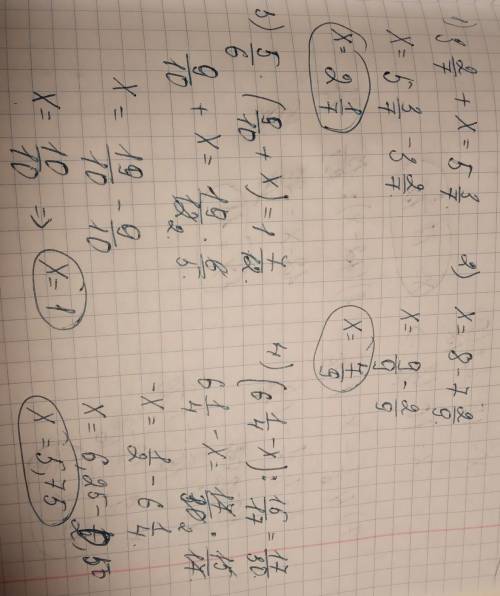 1) 3 2/7 + x = 5 3/7.
x = 5 3/7 - 3 2/7.
x = 2 1/7
2) x = 8 - 7 2/9.
x = 9/9 - 2/9
x = 7/9
3) 5/6 · (9/10 + x) = 1 7/12.
9/10 + x = 19/12 2 · 6/5.
x = 19/10 - 9/10
x = 10/10 => x = 1
4) (6 1/4 - x) : 15/17 = 17/30
6 1/4 - x = 17/30 2 · 15/17.
-x = 1/2 - 6 1/4.
x = 6,25 - 0,50
x = 5,75